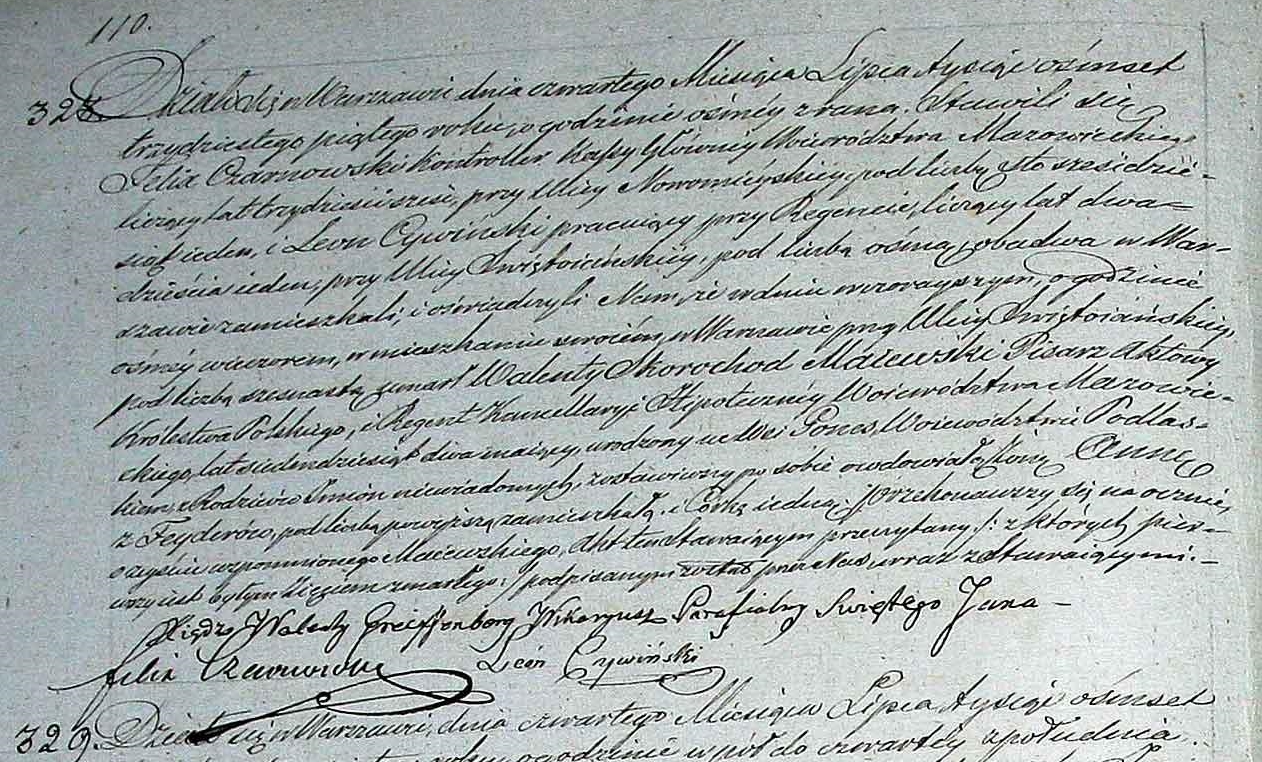 110.
328. Działo się w Warszawie dnia czwartego Miesiąca Lipca tysiąc ośmset
trzydziestego piątego roku, o godzinie ósmey z rana. Stawili się
Felix Czarnowski Kontroller Kassy Główney Woiewództwa Mazowieckiego
liczący lat trzydzieści sześć, przy Ulicy Nowomieyskiey, pod liczbą sto sześćdzie-
siąt ieden, i Leon Cywiński pracuiący przy Regencie, liczący lat dwa-
dzieścia ieden, przy Ulicy Świętoiańskiey, pod liczbą ósmą, obadwa w War-
szawie zamieszkali, i oświadczyli Nam, że w dniu wczorayszym, o godzinie
ósmey wieczorem, w mieszkaniu swoiém, w Warszawie przy Ulicy Świętoiańskiey,
pod liczbą szesnastą, umarł Walenty Skorochod Maiewski Pisarz Aktowy
Królestwa Polskiego, i Regent Kancellaryi Hipoteczney Woiewództwa Mazowie-
ckiego, lat siedemdziesiąt dwa maiący, urodzony we Wsi Woiewództwie Podlas-
kiem, z Rodziców Imion niewiadomych, zostawiwszy po sobie owdowiałą Żonę Annę
z Feyderów, pod liczbą powyższą zamieszkałą i Córkę iednę. Przekonawszy się na ocznie
o zeyściu wspomnionego Maiewskiego, Akt ten Stawaiącym przeczytany /: z których pier-
wszy iest byłym Zięciem zmarłego :/ podpisanym został przez Nas, wraz z Stawaiącymi. –
Xiądz Walenty Greiffenberg Wikaryusz Parafialny Świętego Jana –
Felix Czarnowski Leon Cywiński
329. Działo się w Warszawie, dnia czwartego Miesiąca Lipca tysiąc ośmset
roku, o godzinie w pół do czwartey z południa.